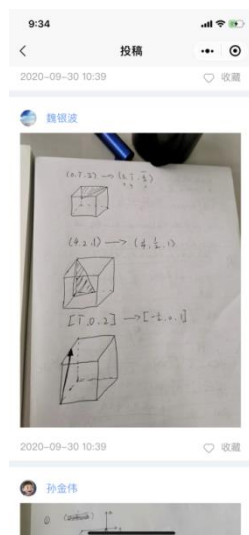 9:34
投稿
2020-09-30 10:39
收藏
魏银波
(4.2.1) → (4, ½, 1)
[1̄.0.2] → [-½.0.1]
2020-09-30 10:39
收藏
孙金伟